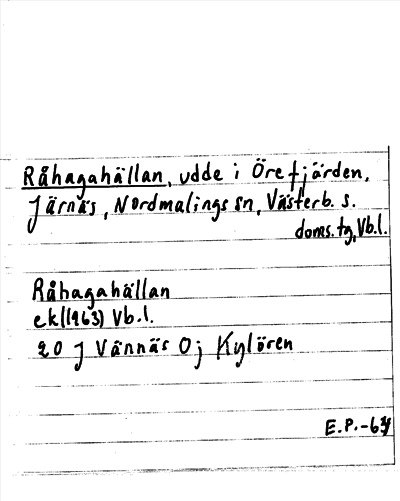 Råhagahällan, udde i Örefjärden,
Järnäs, Nordmalings sn, Västerb. s.
doms. tg, Vb.l.
Råhagahällan
ek (1963) Vb.l.
20 J Vännäs Oj Kylören
E.P.-63